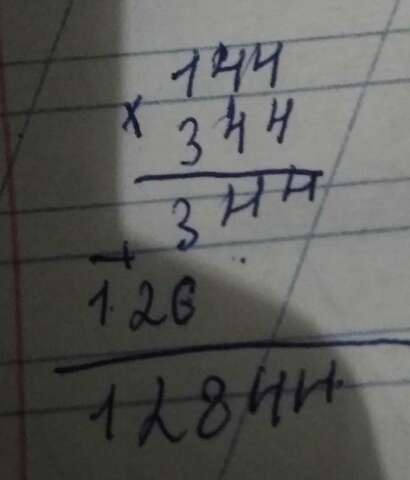 144
× 344
344
+
126
12844